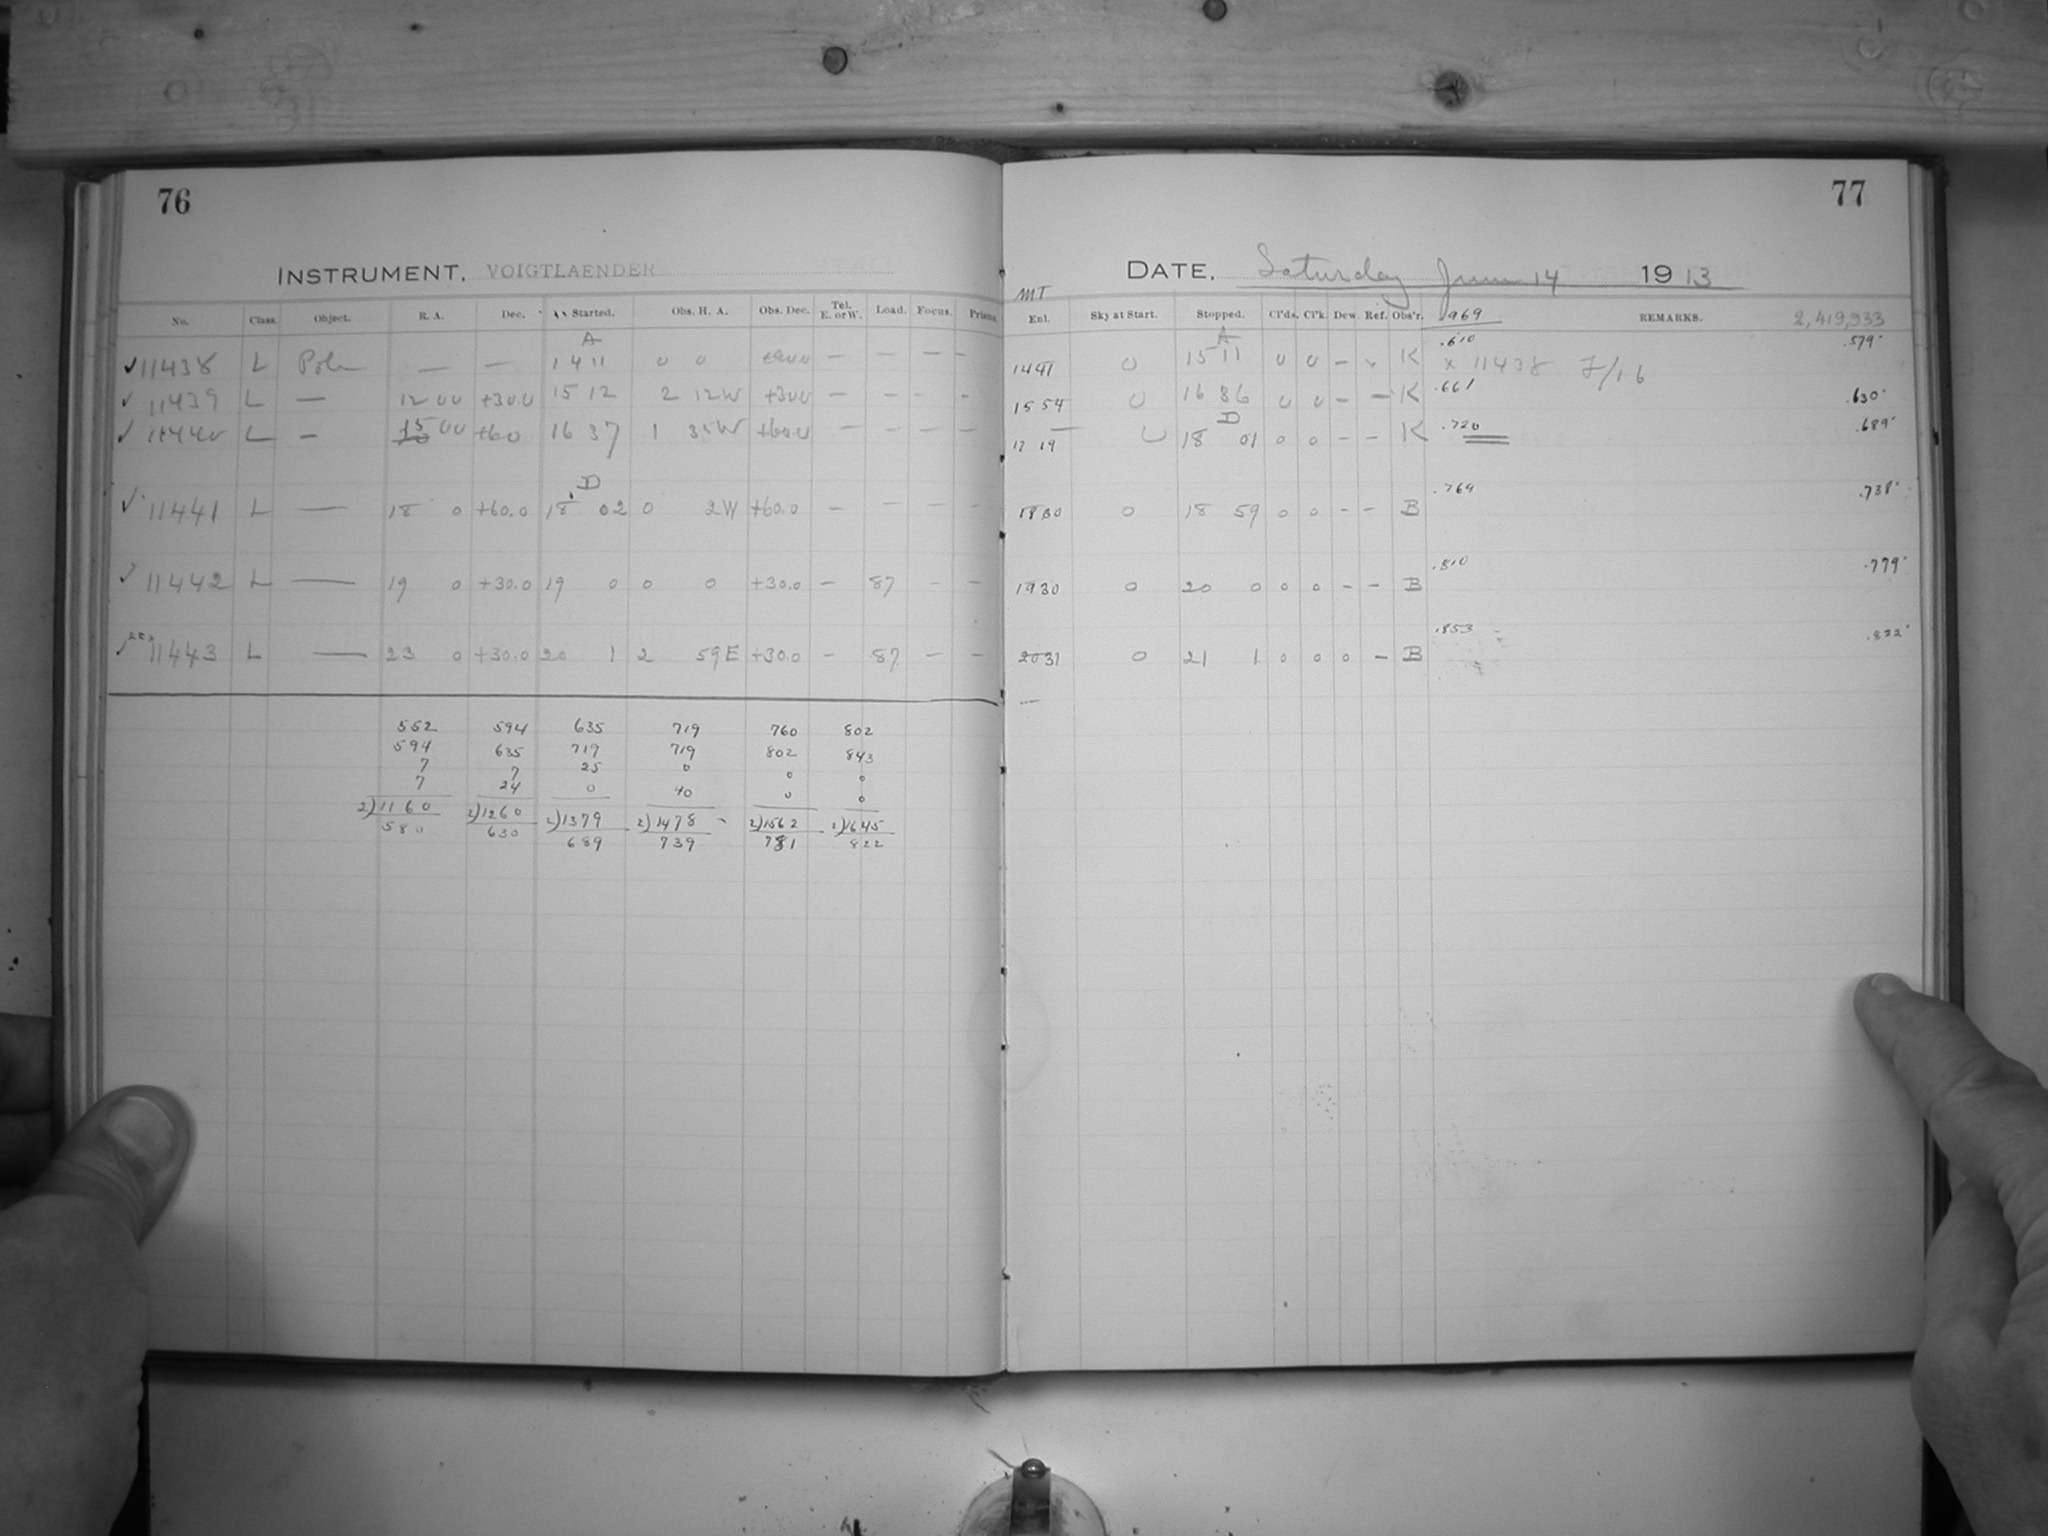 76
INSTRUMENT. VOIGTLAENDER
No. Class. Object. R. A. Dec. Started. Obs. H. A. Obs. Dec. Tel. E. or W. Load. Focus. Prisms.
✓11438 L Pole — — A 14 11 0 0 — — — —
✓ 11439 L — 12 00 +30.0 15 12 2 12W +300 — — — —
✓ 11440 L — 15 00 +60 16 37 1 35W +60.0 — — — —
✓ 11441 L — 18 0 +60.0 D 18 02 0 2W +60.0 — — — —
✓ 11442 L — 19 0 +30.0 19 0 0 0 +30.0 — 87 — —
✓ 11443 L — 23 0 +30.0 20 1 2 59E +30.0 — 87 — —
552 594 635 719 760 802
594 635 719 719 802 843
7 7 25 0 0 0
7 24 0 40 0 0
2)1160 2)1260 2)1379 2)1478 2)1562 2)1645
580 630 689 739 781 822
77
DATE. Saturday June 14 1913
MT
Enl. Sky at Start. Stopped. Cl'ds. Cl'k. Dew. Ref. Obs'r. .969 REMARKS. 2,419,933
1441 0 A 15 11 0 0 — - K .610 x 11438 F/16 .579
1554 0 16 36 0 0 — — K .661 .630
17 19 0 D 18 01 0 0 — — K .720 .689
1830 0 18 59 0 0 — — B .769 .738
1930 0 20 0 0 0 — — B .810 .779
2031 0 21 1 0 0 0 — B .853 .822